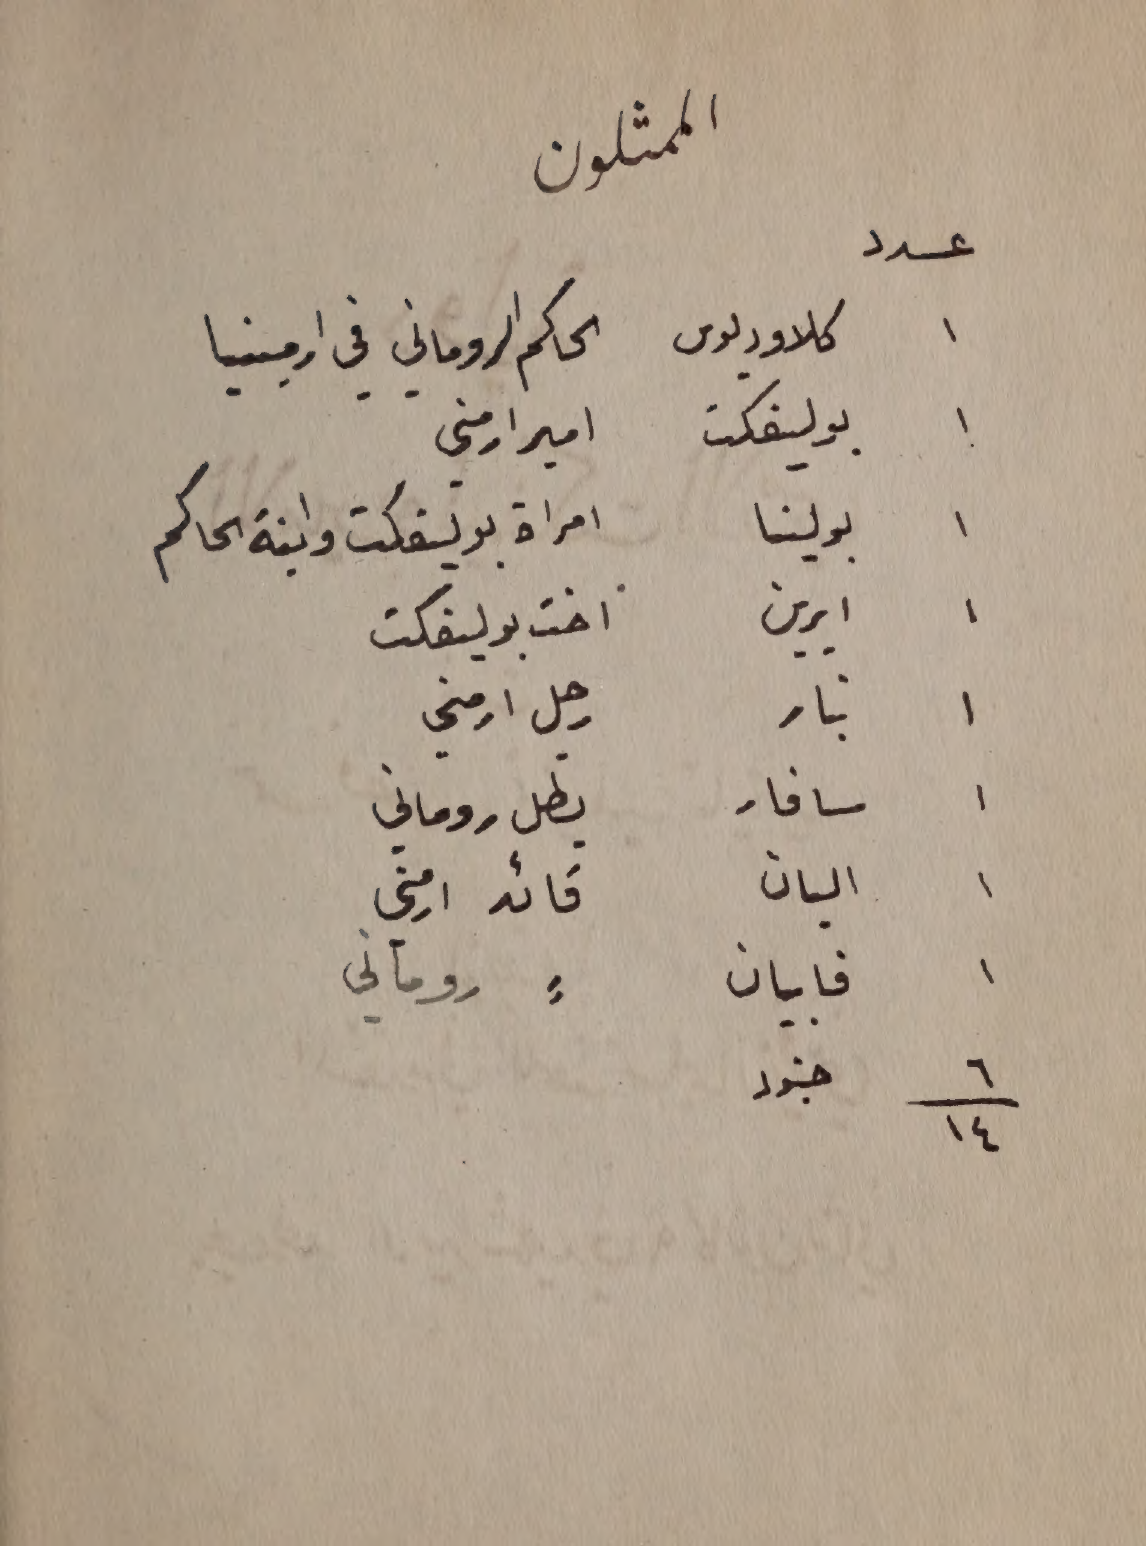 الممثلون
عدد
١ كلاوديوس الحاكم الروماني في ارمينيا
١ بوليفكت امير ارمني
١ بولينا امراة بوليفكت وابنة الحاكم
١ ايرين اخت بوليفكت
١ نبار رجل ارمني
١ سافار بطل روماني
١ اليان قائد ارمني
١ فابيان " روماني
٦ جنود
١٤